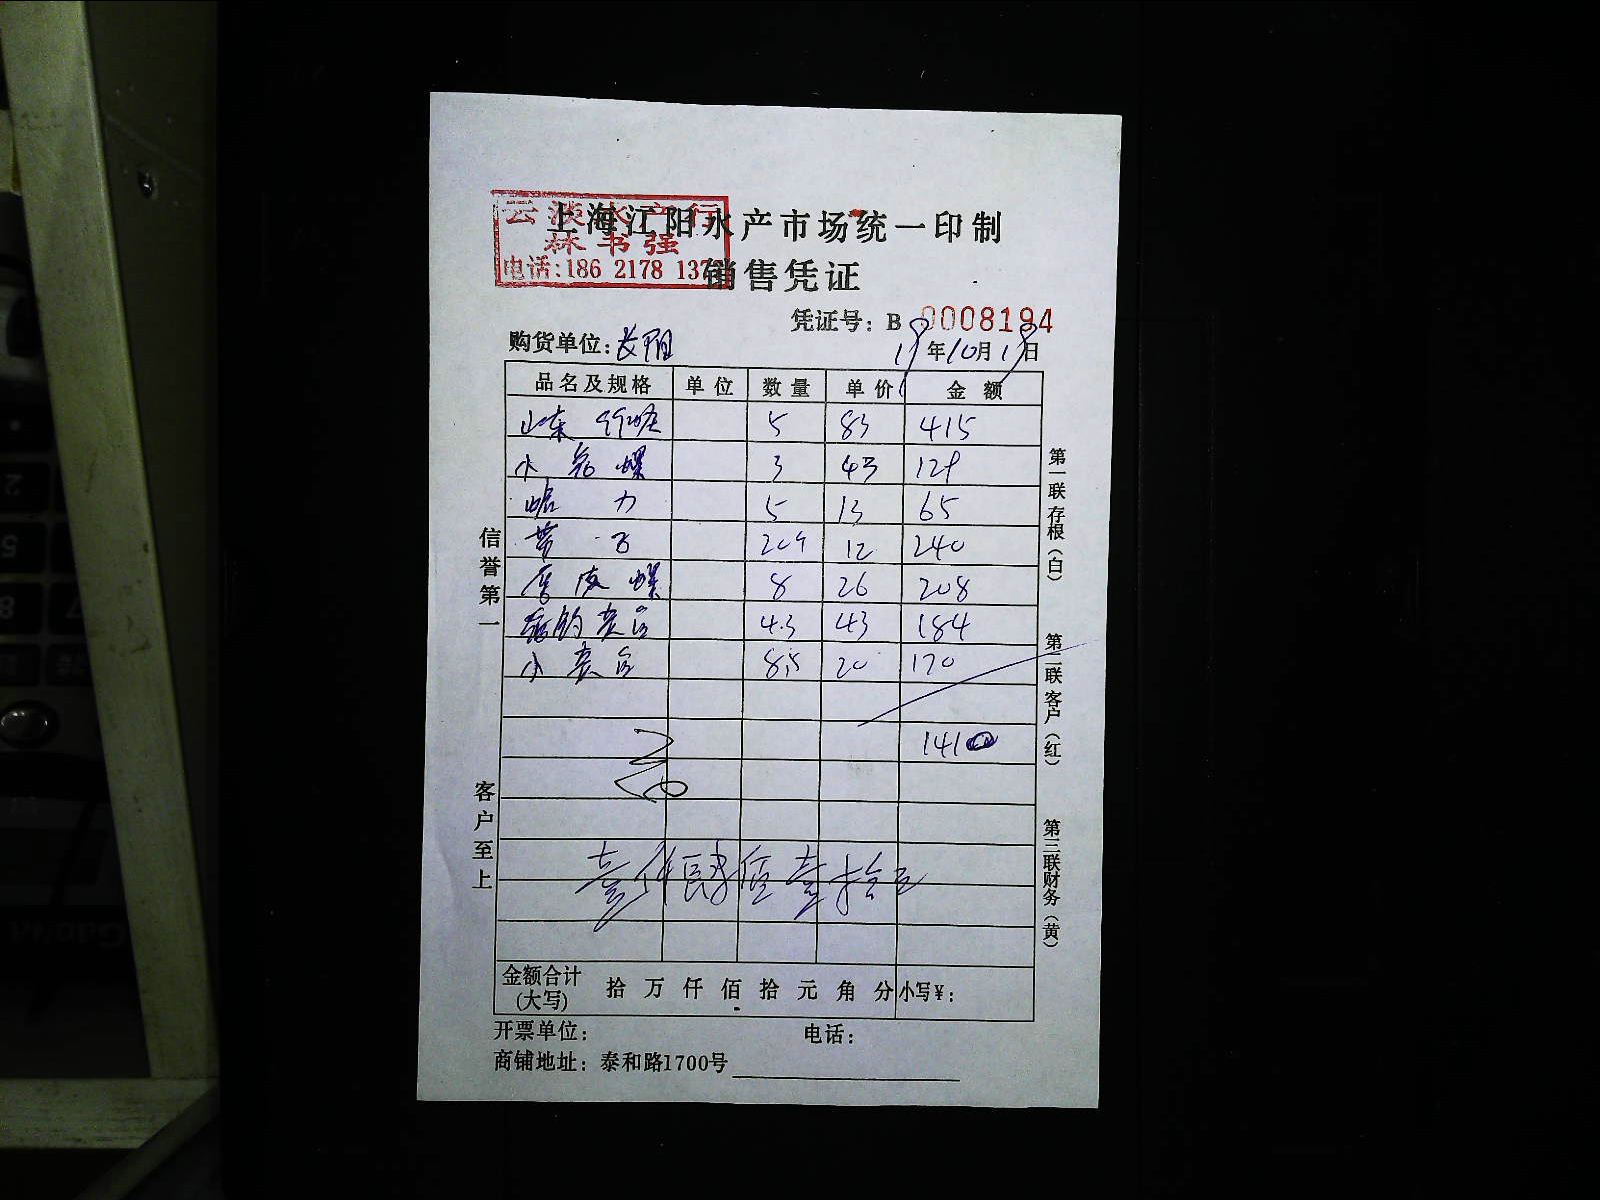 云淡水产行
林书强
电话:186 2178 137
上海江阳水产市场统一印制
销售凭证
凭证号: B 0008194
购货单位:
19年10月19日
品名及规格 单位 数量 单价 金额
山东 5 83 415
小 螺 3 43 129
蛤 力 5 13 65
带 子 20 12 240
螺 8 26 208
4.3 43 184
小 8.5 20 170
1410
壹仟肆佰壹拾元
金额合计(大写) 拾 万 仟 佰 拾 元 角 分 小写¥:
开票单位: 电话:
商铺地址: 泰和路1700号
信誉第一
客户至上
第一联存根(白)
第二联客户(红)
第三联财务(黄)